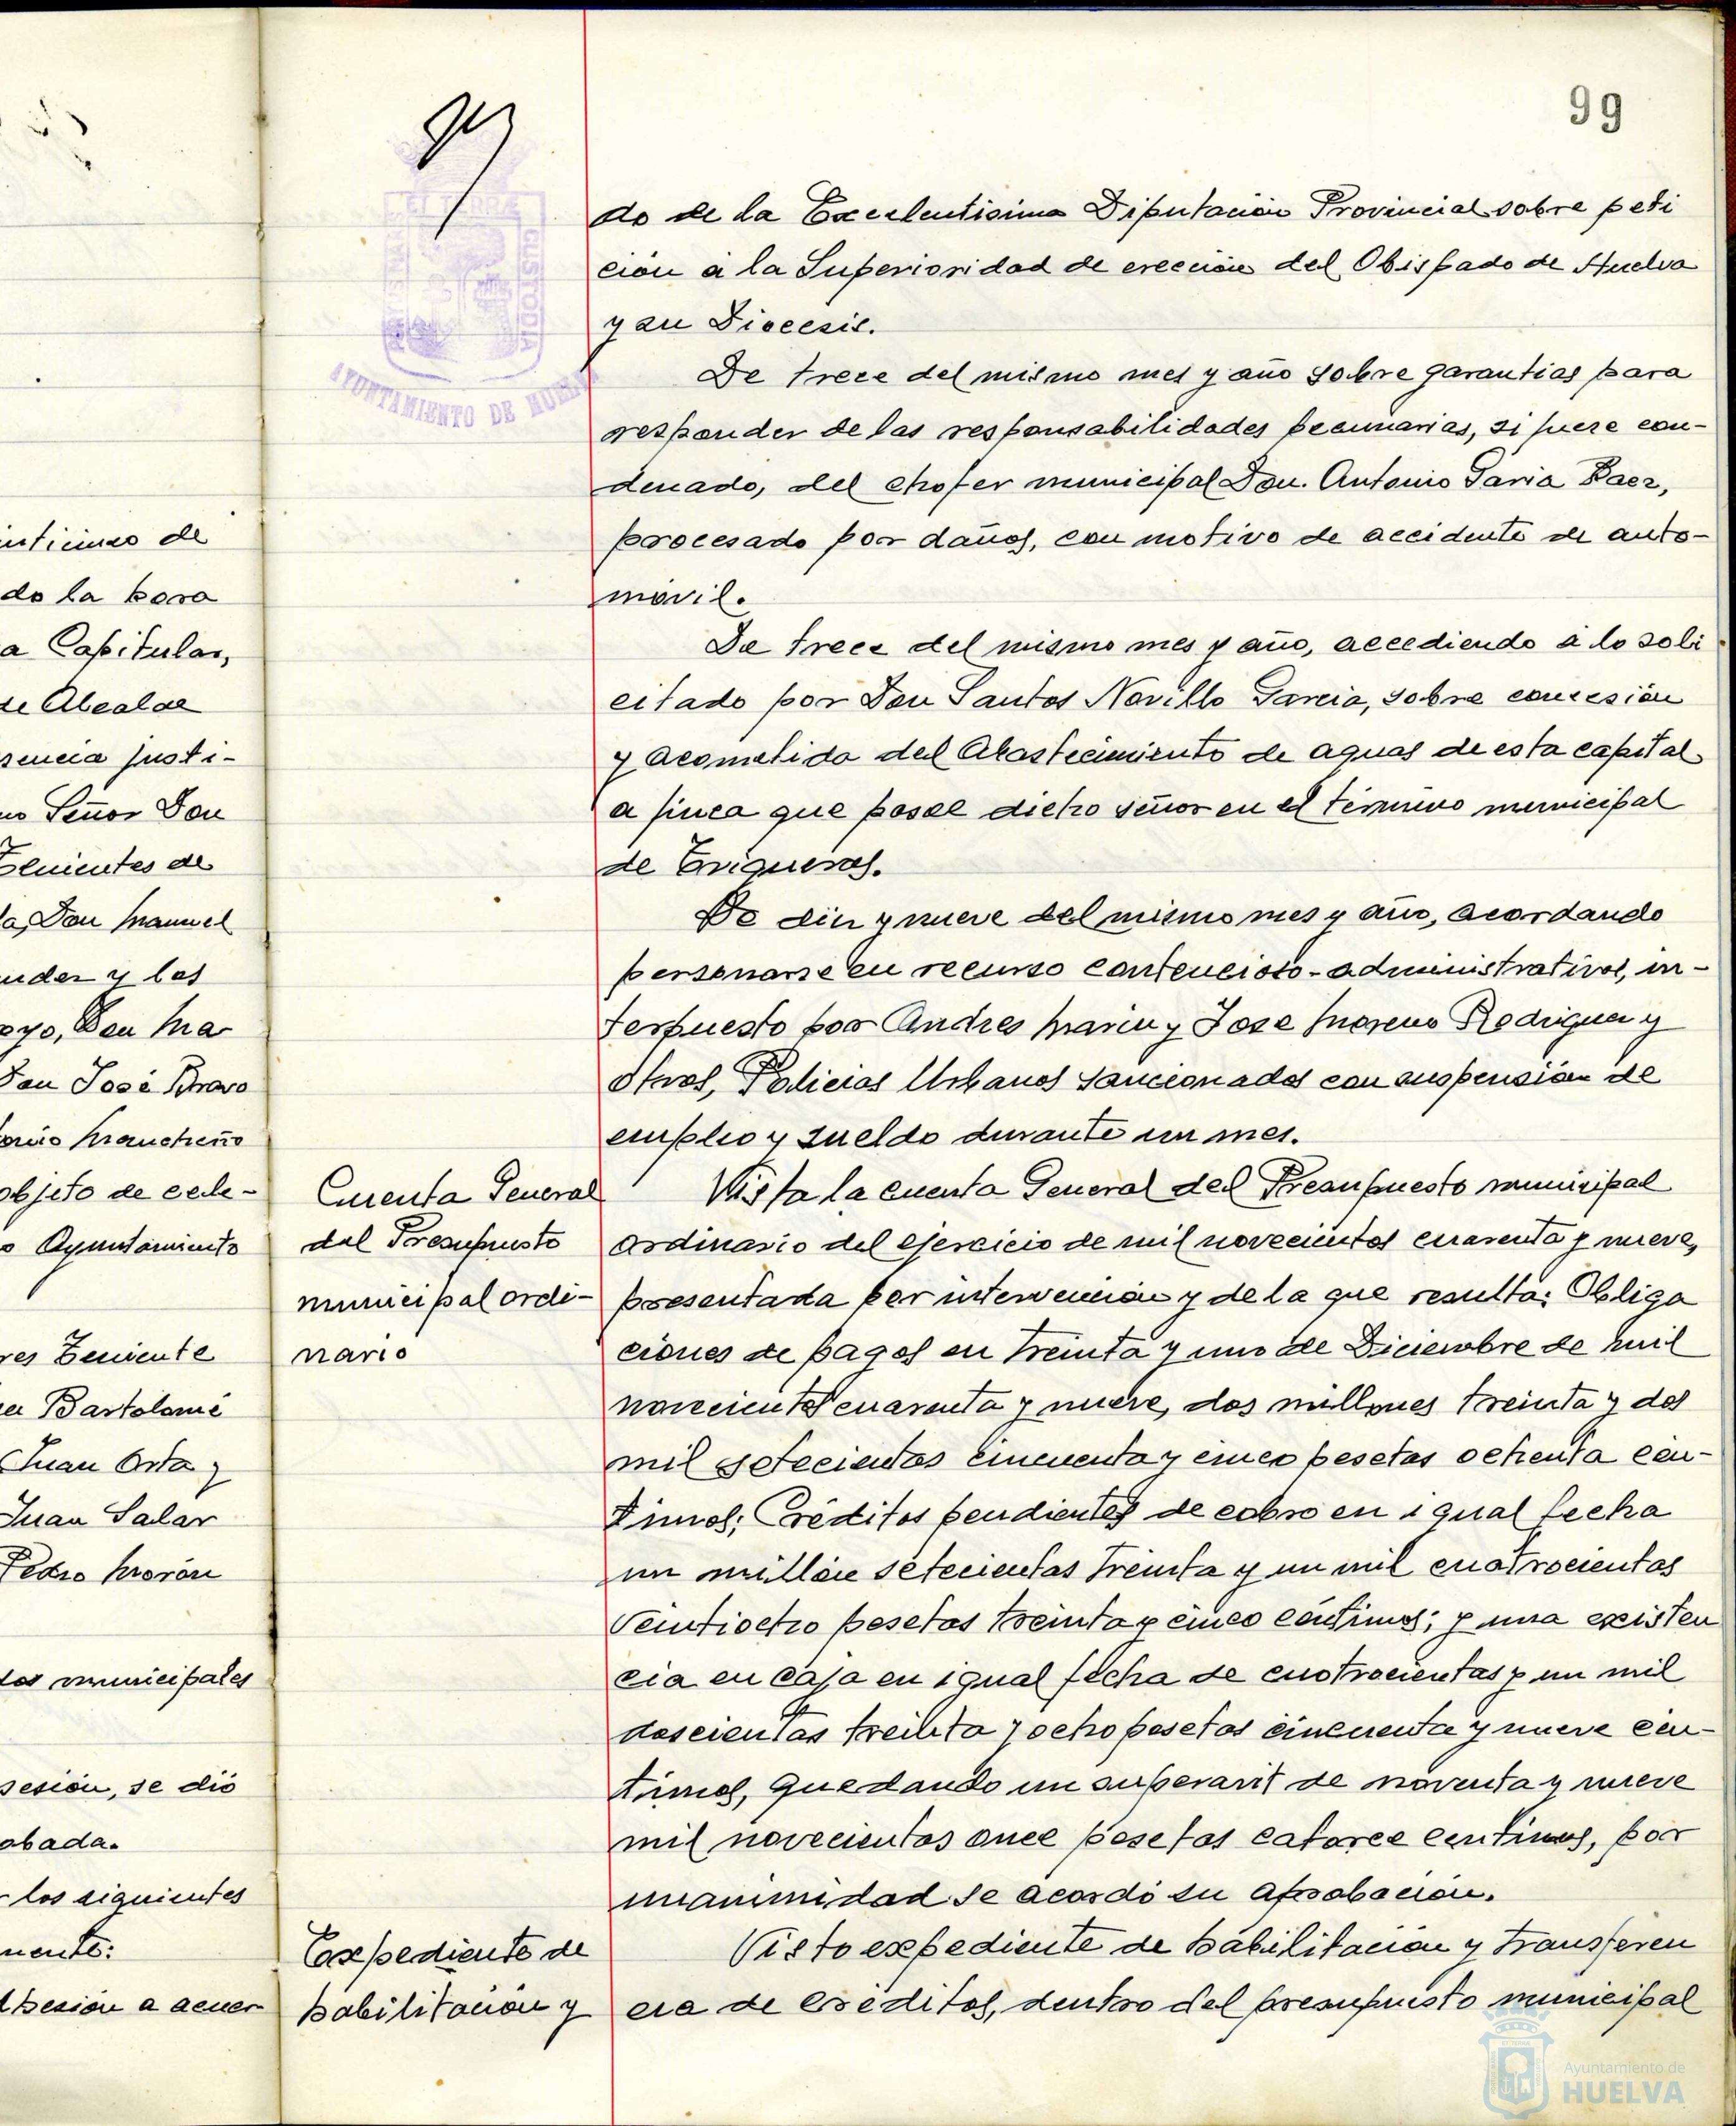 99
do de la Excelentisima Diputación Provincial sobre peti
ción a la Superioridad de erección del Obispado de Huelva
y su Diocesis.
De trece del mismo mes y año sobre garantias para
responder de las responsabilidades pecuniarias, si fuere con-
denado, del chofer municipal Don. Antonio Garia Baez,
procesado por daños, con motivo de accidente de auto-
movil.
De trece del mismo mes y año, accediendo a lo soli
citado por Don Santos Novillo Garcia, sobre concesión
y acometida del Abastecimiento de aguas de esta capital
a finca que posee dicho señor en el término municipal
de Trigueros.
De diez y nueve del mismo mes y año, acordando
personarse en recurso contencioso-administrativos, in-
terpuesto por Andres Marin y Jose Moreno Rodriguez y
otros, Policias Urbanos sancionados con suspensión de
empleo y sueldo durante un mes.
Cuenta General
del Presupuesto
municipal ordi-
nario
Vista la cuenta General del Presupuesto municipal
ordinario del ejercicio de mil novecientos cuarenta y nueve,
presentada por intervención y de la que resulta: Obliga
ciones de pagos en treinta y uno de Diciembre de mil
novecientos cuarenta y nueve, dos millones treinta y dos
mil setecientas cincuenta y cinco pesetas ochenta cén-
timos; Créditos pendientes de cobro en igual fecha
un millón setecientas treinta y un mil cuatrocientas
veintiocho pesetas treinta y cinco céntimos; y una existen
cia en caja en igual fecha de cuatrocientas y un mil
doscientas treinta y ocho pesetas cincuenta y nueve cén-
timos, quedando un superavit de noventa y nueve
mil novecientas once pesetas catorce centimos, por
unanimidad se acordó su aprobación.
Expediente de
habilitación y
Visto expediente de habilitación y transferen
cia de créditos, dentro del presupuesto municipal
do la hora
a Capitular,
de Alcalde
sencia justi-
no Señor Don
Tenientes de
la, Don Manuel
nder y los
oyo, Don Ma
Don José Bravo
onio Mancheño
objeto de cele-
o Ayuntamiento
res Teniente
er Bartolomé
Juan Orta y
Juan Salar
Pedro Morón
tos municipales
sesión, se dió
obada.
los siguientes
mente:
dhesión a acuer
AYUNTAMIENTO DE HUELVA
CUSTODIA
Ayuntamiento de
HUELVA